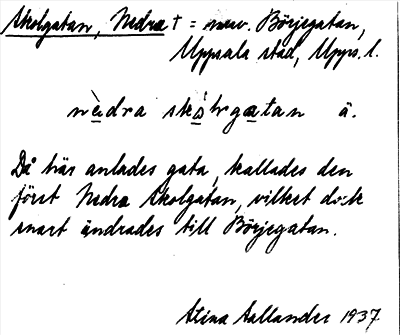 Skolgatan, Nedra † = nuv. Börjegatan,
Uppsala stad, Upps. l.
nèdra skò̀lrgatan ä.
Då här anlades gata, kallades den
först Nedra Skolgatan, vilket dock
snart ändrades till Börjegatan.
Stina Aallander 1937.